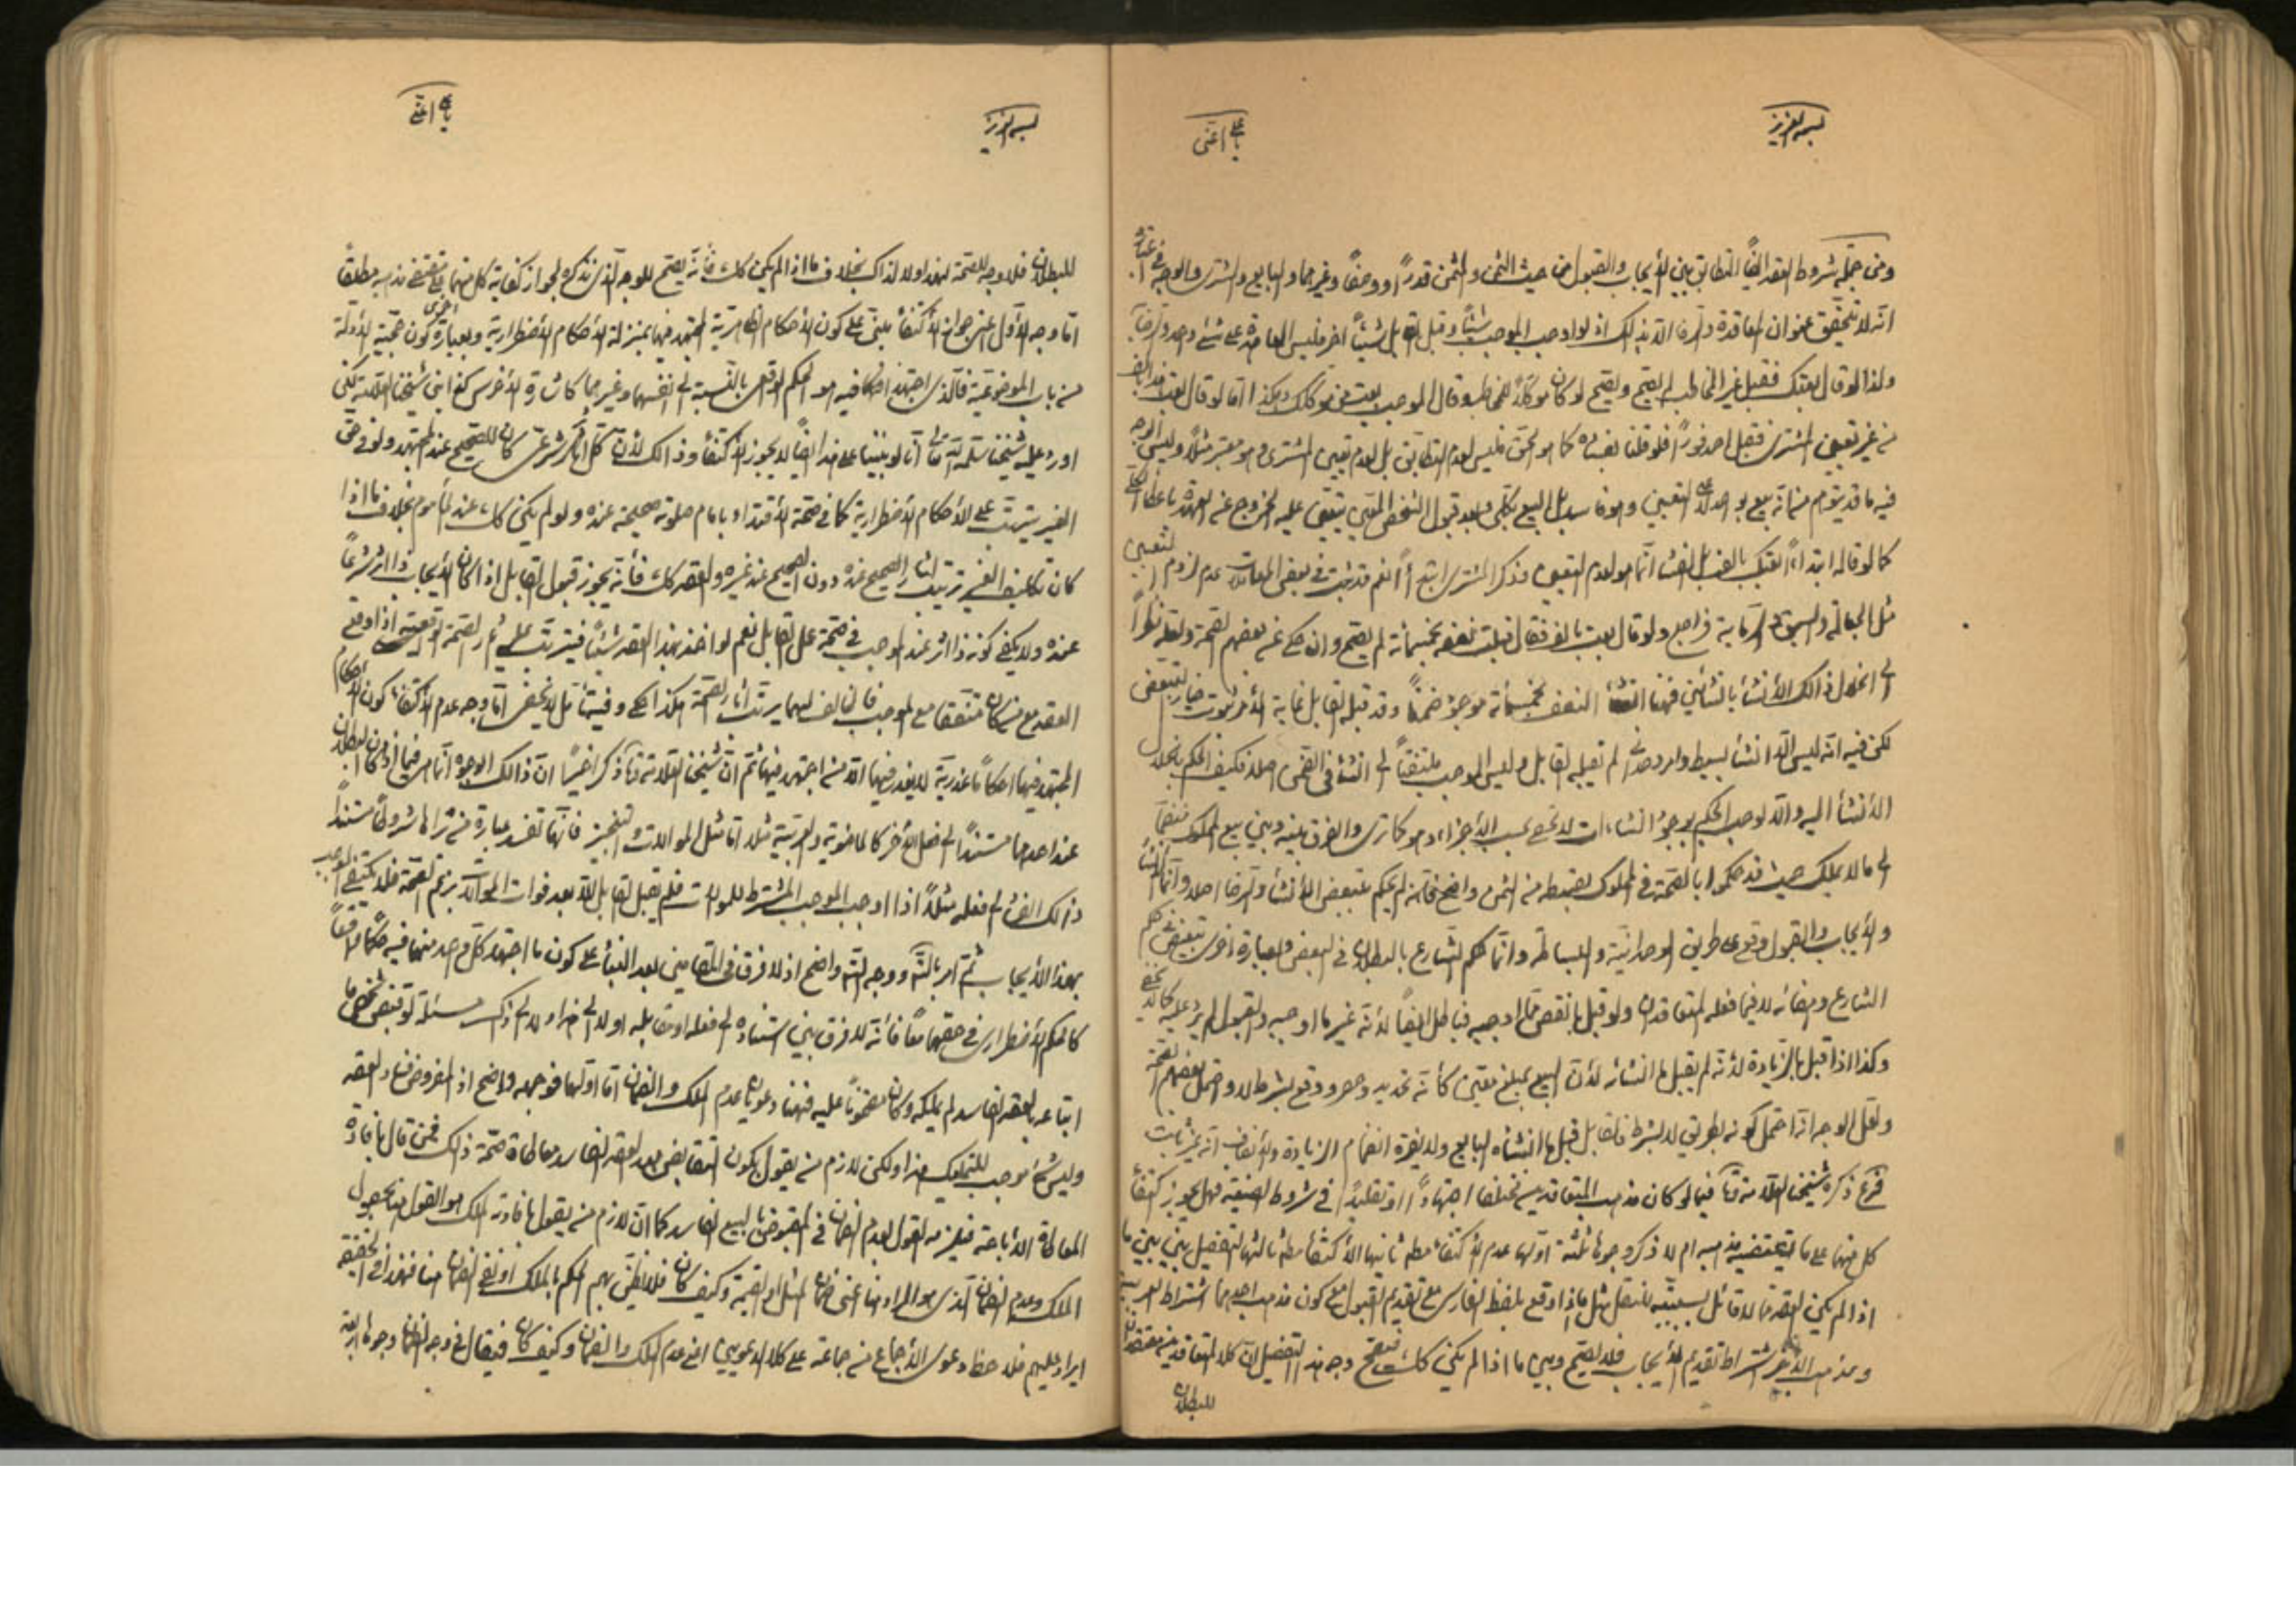 بسمه العزيز
يا علي اغثنى
ومن جملة شروط العقد ايضًا التطابق بين الأيجاب والقبول من حيث الثمن والمثمن قدرًا ووصفًا وغيرهما والبايع والمشترى والوجه في اعتباره
انّه لا يتحقق عنوان المعاقدة والرضا الّا بذلك اذ لو اوجب الموجب شيئًا وقبل القابل شيئًا اخر فليس المعاقدة على شئ واحد
ولذا لو قال بعتك فقبل غير المخاطب لم يصّح ويصّح لو كان موكلًا للمخاطب وقال الموجب بعت من موكلك وهكذا امّا لو قال بعت هذا بالف
من غير تعيين المشترى فقبل احد فورًا فلو قلنا بفساده كما هو الحق فليس لعدم التطابق بل لعدم تعيين المشترى وهو معتبر مثلًا وليس الوجه
فيه ما قد يتوهم من انّه بيع بوجه التعيين وهو فاسد بل البيع بكلى وبعد قبول الشخص المعين يتعين عليه الخروج عن العهدة باعطاء
كما لو قاله ابتداء بعتك بالف بل الفساد انّما هو لعدم التعيين وذكر المشترى ابتداءً نعم قد ثبت في بعض المعاملات عدم لزوم التعيين
مثل الجعالة والسبق والرماية فراجع ولو قال بعت بالف فقال قبلت نصفه بخمسمأئة لم يصّح وان حكى عن بعضهم الصّحة ولعله نظرًا
الى انحلال ذالك الأنشأ بانشائين فهنا انشاء النصف بخمسمأة موجود ضمنًا وقد قبله القابل غاية الأمر ثبوت خيار التبعض
لكن فيه انّه ليس الّا انشأ بسيط واحد وحدانى لم يقبله القابل وليس الموجب ملتفتًا الى انشاء في الضمن اصلًا فكيف الحكم بانحلال
الأنشأ اليه والّا لوجب الحكم بوجود انشاءات لا تحصى بحسب الأجزاء وهو كما ترى والفرق بينه وبين بيع المملوك منضمًا
الى ما لا يملك حيث قد حكموا بالصّحة في المملوك بقسطه من الثمن واضح فانّه لم يحكم بتبعض الأنشأ والرضا اصلًا وانّما الأنشأ
والأيجاب والقبول وقع على طريق الوحدانية والبساطة وانّما حكم الشارع بالبطلان في البعض وبعبارة اخرى بتبعض حكم
الشارع وامضائه لا فيما فعله المتعاقدان ولو قبل بانقص ممّا اوجبه فباطل ايضًا لأنّه غير ما اوجبه والقبول لم يرد عليه كما لا يخفى
وكذا اذا قبل بالزيادة لأنّه لم يقبل ما انشائه لأنّ البيع بمبلغ معين كأنّه تحديد وحصر ووقع بشرط لا واحتمل بعضهم الصّحة
ولعلّ الوجه انّه احتمل كونه بطريق لا بشرط فالقابل قبل ما انشاه البايع ولا يضره انضمام الزيادة والأنصاف انّه غير ثابت
فرع ذكره شيخنا العلّامة قدّه فيما لو كان مذهب المتعاقدين مختلفا اجتهادًا او تقليدًا في شروط الصيغة فهل يجوز اكتفاء
كل منهما على ما يقتضيه مذهبه ام لا ذكر وجوهًا ثلثة اوّلها عدم الأكتفاء مطم ثانيها الأكتفاء مطم ثالثها التفصيل بين ما
اذا لم يكن العقد ممّا لا قائل بسببيته للنقل مثل ما اذا وقع بلفظ الفارسى مع تقديم القبول مع كون مذهب احدهما اشتراط العربية
ومذهب الأخر اشتراط تقديم الأيجاب فلا يصّح وبين ما اذا لم يكن كك فيصّح وجه هذا التفصيل انّ كلا المتعاقدين معتقدان
للبطلان
بسمه العزيز
يا علي اغثنى
للبطلان فلا وجه للصّحة لهذا ولا لذاك بخلاف ما اذا لم يكن كك فأنّه يصّح للوجه الّذى نذكره لجواز كفاية كل منهما على مقتضى مذهبه مطلقًا
امّا وجه الأوّل اعنى جواز الأكتفأ مبنىّ على كون الأحكام الظاهرية المجتهد فيها بمنزلة الأحكام الأضطرارية وبعبارة اخرى كون حجّية الأدلة
من باب الموضوعية فالّذى اجتهد احدهما فيه هو الحكم الواقعى بالنسبة الى انفسهما وغيرهما كاشارة الأخرس كما بنى شيخنا العلّامة لكن
اورد عليه شيخنا سلمه الله تعالى انّا لو بنينا على هذا ايضًا لا يجوز الأكتفأ وذالك لأنّ كلّ اثر شرعىّ كان للصحيح عند المجتهد ولو في حقّ
الغير يترتّب على الأحكام الأضطرارية كما في صحّة الأقتداء بامام صلوته صحيحة عنده ولو لم يكن كك عند المأموم بخلاف ما اذا
كان تكليف الغير ترتيب اثار الصحيح عنده دون الصحيح عند غيره والعقد كك فأنّه يجوز قبول القابل اذا كان الأيجاب ذا اثر شرعًا
عنده ولا يكفى كونه ذا اثر عند الموجب في صحّة عمل القابل نعم لو اخذ بهذا العقد شيئًا فيترتّب عليه اثار الصّحة الواقعية اذا وقع
العقد مع من كان متفقا مع الموجب فالثالث لهما يرتّب اثار الصّحة هكذا حكى وفيه تأمّل لا يخفى امّا وجه عدم الأكتفاء كون الأحكام
المجتهد فيها احكامًا عذرية لا يعذر فيها الّا من اجتهد فيها ثم انّ شيخنا العلّامة قدّه ذكر اخيرًا انّ ذالك الوجوه انّما هى فيما اذا كان البطلان
عند احدهما مستندًا الى فعل الأخر كالماضوية والعربية مثلًا امّا مثل الموالات والتنجيز فانّها تفسد عبارة من يراها شروطًا مستندًا
ذالك الفساد الى فعله مثلًا اذا اوجب الموجب المشترط للموالات فلم يقبل القابل الّا بعد فوات الموالات بزعم الصّحة فلا يكتفى الموجب
بهذا الأيجاب ثمّ امر بالتأمّل ووجه التأمّل واضح اذ لا فرق في المقامين بعد البنأ على كون ما اجتهد كلّ واحد منهما فيه حكمًا واقعًا
كالحكم الأضطرارى في حقهما معًا فأنّه لا فرق بين استناده الى فعله او مقابله اولا الى هذا ولا الى ذاك مسئلة لو قبض شخص ما
ابتاعه بالعقد الفاسد لم يملكه وكان مضمونًا عليه فهنا دعويان عدم الملك والضمان امّا اوّلهما فوجهه واضح اذ المفروض فساد العقد
وليس شئ موجب للتمليك هذا ولكن لازم من يقول بكون التقابض بعد العقد الفاسد معاطاة صحّة ذالك فمن قال بافادة
المعاطاة الأباحة فيلزمه القول بعدم الضمان في المقبوض بالبيع الفاسد كما انّ لازم من يقول بافادته الملك هو القول هنا بحصول
الملك وعدم الضمان الّذى هو المراد هنا اعنى ضمان المثل او القيمة وكيف كان فلا يظنّ بهم الحكم بالملك او نفى الضمان هنا فهذا في الحقيقة
ايراد عليهم فلا حظ دعوى الأجماع من جماعة على كلا الدعويين اعنى عدم الملك والضمان وكيف كان فيقال في وجه الضمان وجوها اربعة